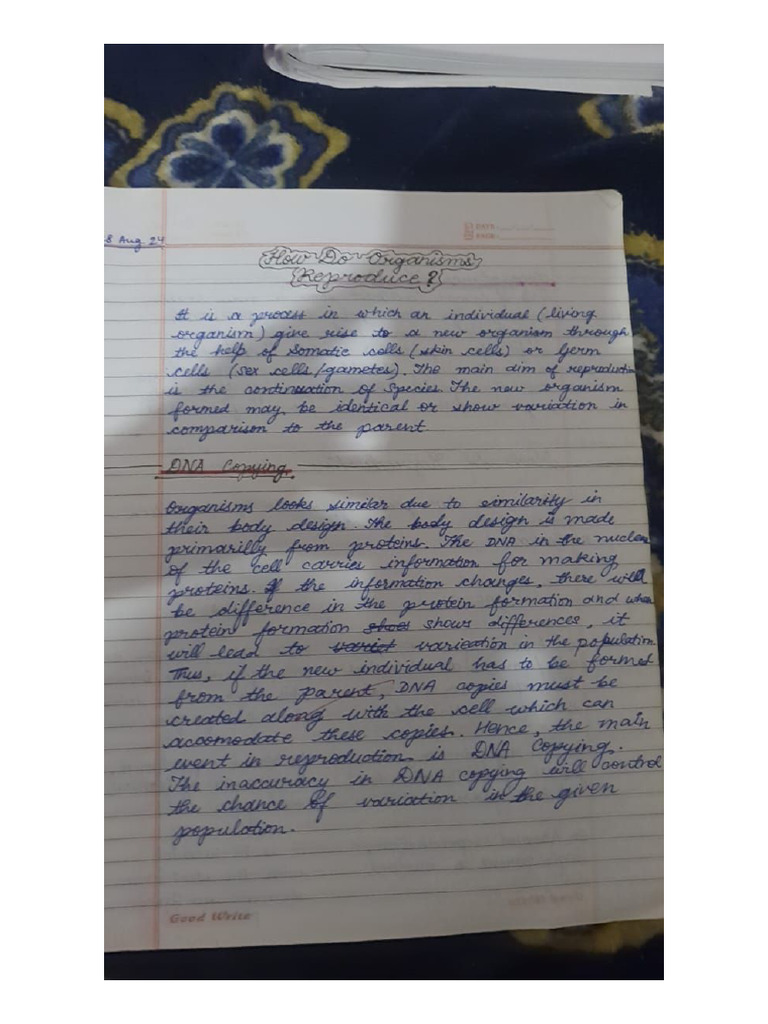 8 Aug 24
DATE
PAGE
How Do Organisms
Reproduce?
It is a process in which an individual (living
organism) give rise to a new organism through
the help of Somatic cells (skin cells) or Germ
cells (sex cells/gametes). The main aim of reproduction
is the continuation of Species. The new organism
formed may be identical or show variation in
comparison to the parent
DNA Copying.
Organisms looks similar due to similarity in
their body design. The body design is made
primarilly from proteins. The DNA in the nucleus
of the cell carries information for making
proteins. If the information changes, there will
be difference in the protein formation and when
protein formation shows differences, it
will lead to varieation in the population
Thus, if the new individual has to be formed
from the parent, DNA copies must be
created along with the cell which can
accomodate these copies. Hence, the main
event in reproduction is DNA Copying.
The inaccuracy in DNA copying will control
the chance of variation in the given
population.
Good Write